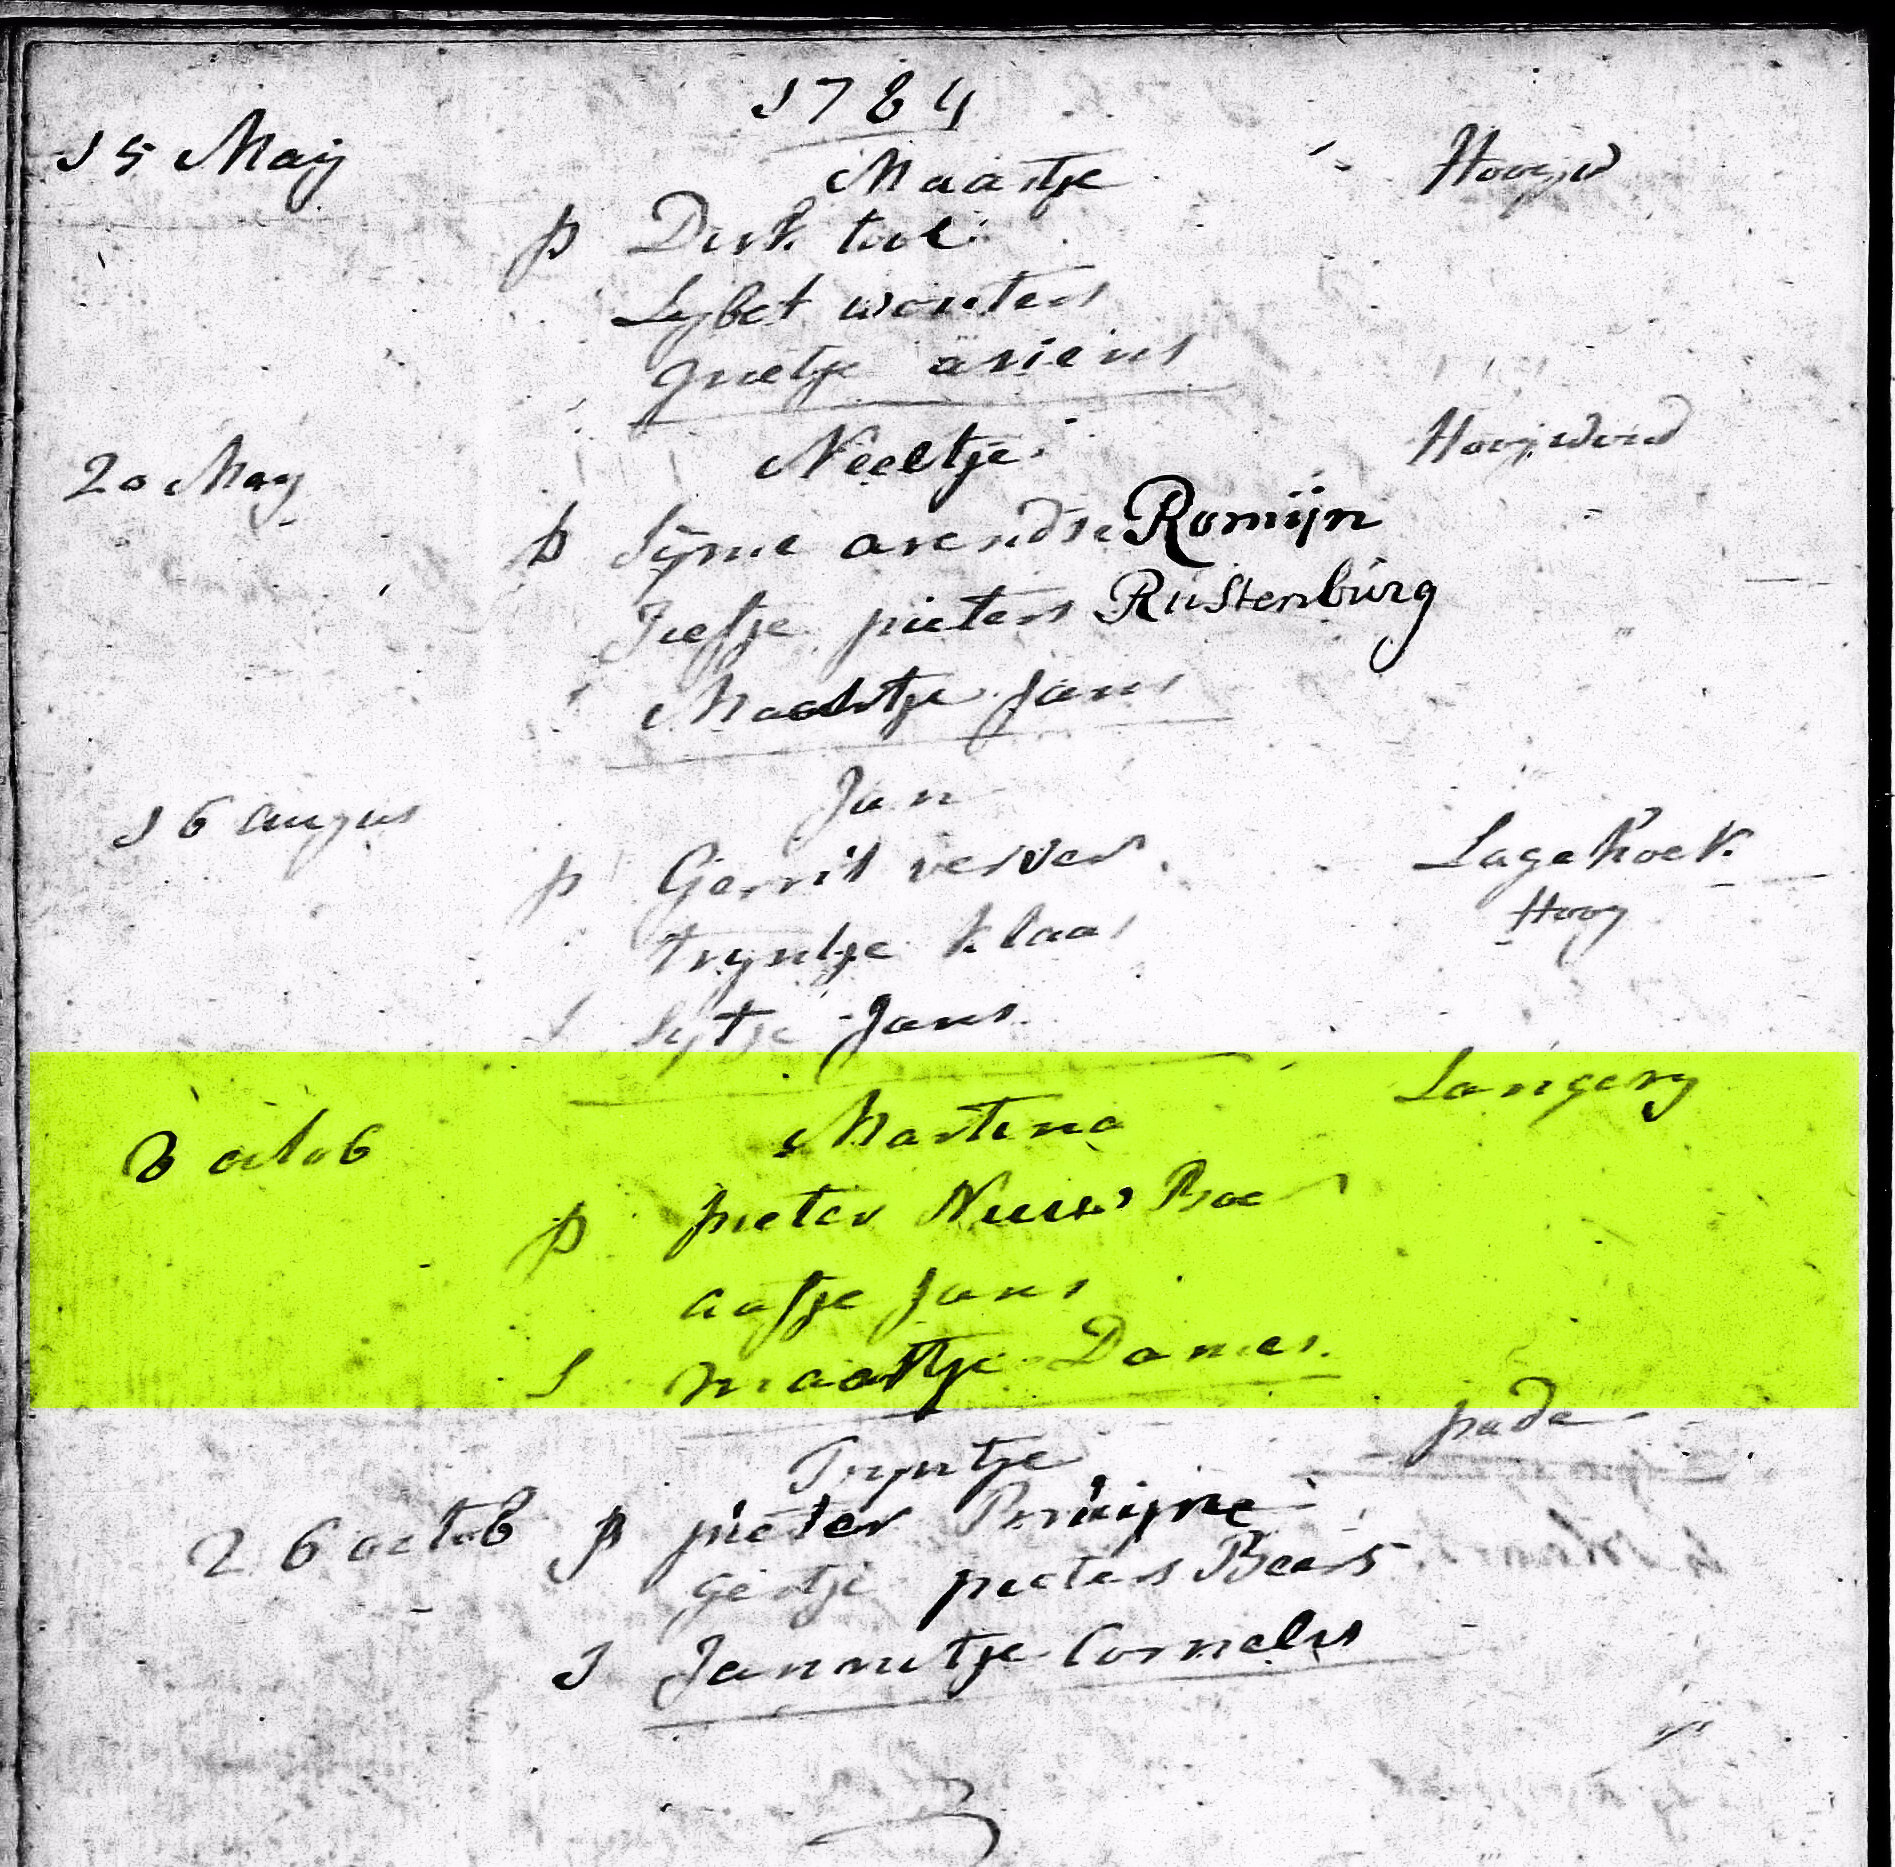 1784
15 Maij Maartje Hoogw
p Dirk tool
Lysbet wouters
grietje ariens
20 May Neeltje Hoogwoud
p Syme arendse Romijn
Jiefje pieters Rustenburg
Maartje Jans
16 augus Jan Lagehoek
p Gerrit verver Hoog
tryntje klaas
S Sytje Jans
8 octob Martina Langery
p pieter Nieuw Boer
aafje Jans
S maartje Dames
Tryntje pade
26 octob p pieter Pruijne
geertje pieters Beers
S Jannitje Cornelis